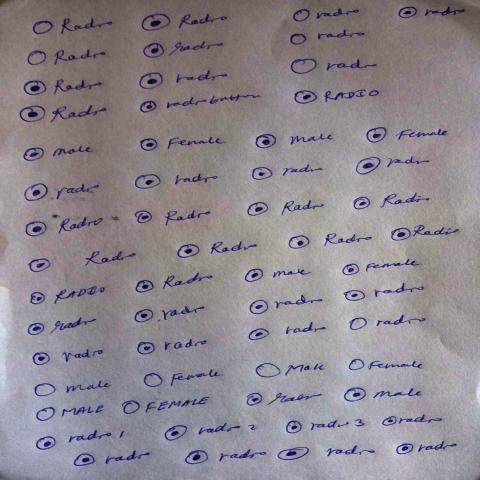 Radio Radio radio radio
Radio Radio radio
Radio radio radio
Radio radio button RADIO
male Female male Female
radio radio radio radio
Radio Radio Radio Radio
Radio Radio Radio Radio
RADIO Radio male Female
Radio radio radio radio
radio radio radio radio
male Female Male Female
MALE FEMALE Radio male
radio 1 radio 2 radio 3 radio
radio radio radio radio